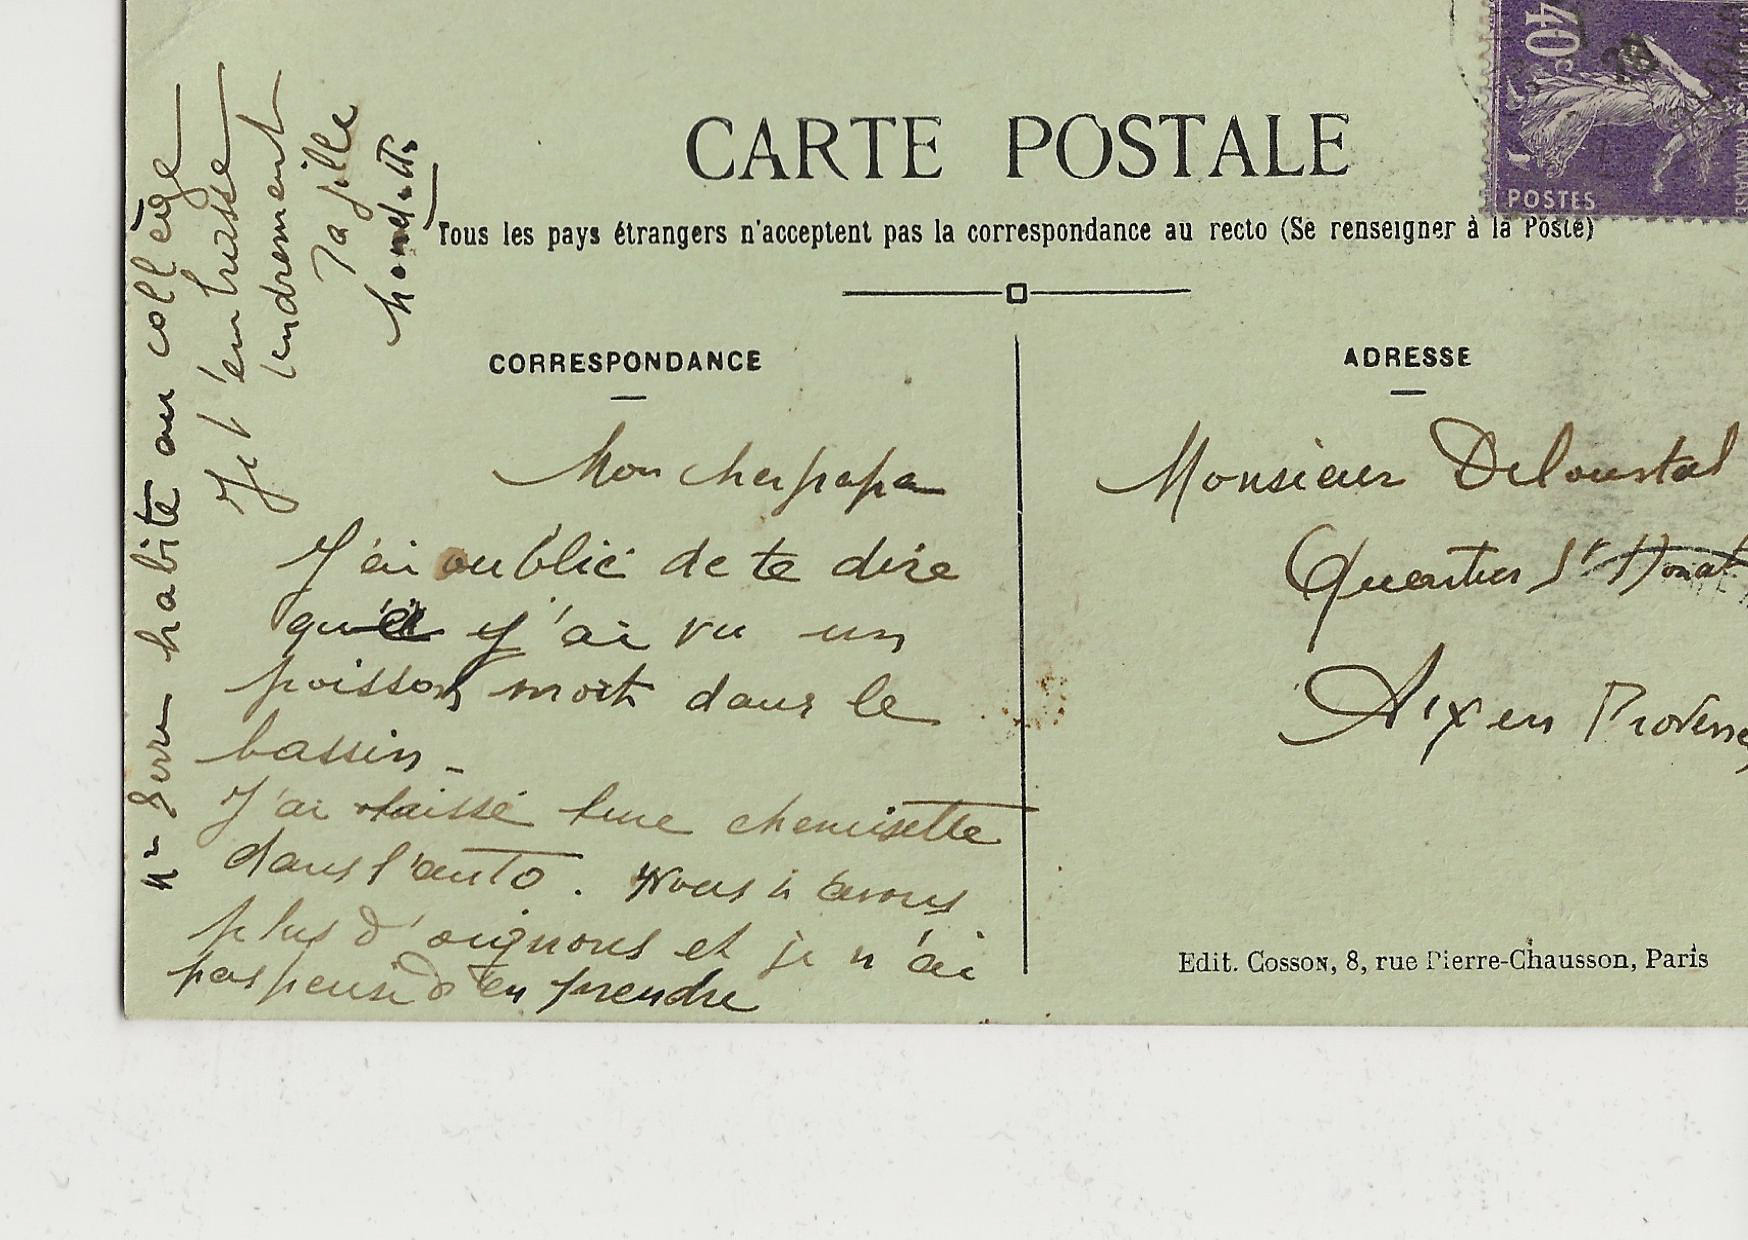 CARTE POSTALE
Tous les pays étrangers n'acceptent pas la correspondance au recto (Se renseigner à la Poste)
CORRESPONDANCE
Mon cher papa
J'ai oublié de te dire
que j'ai vu un
poisson mort dans le
bassin -
J'ai laissé une chemisette
dans l'auto. Nous n'avons
plus d'oignons et je n'ai
pas pensé d'en prendre
habite au collège
Je t'embrasse
tendrement
Ta fille
ADRESSE
Monsieur Deloustal
Quartier St Donat
Aix en Provence
Edit. Cosson, 8, rue Pierre-Chausson, Paris
40c
POSTES